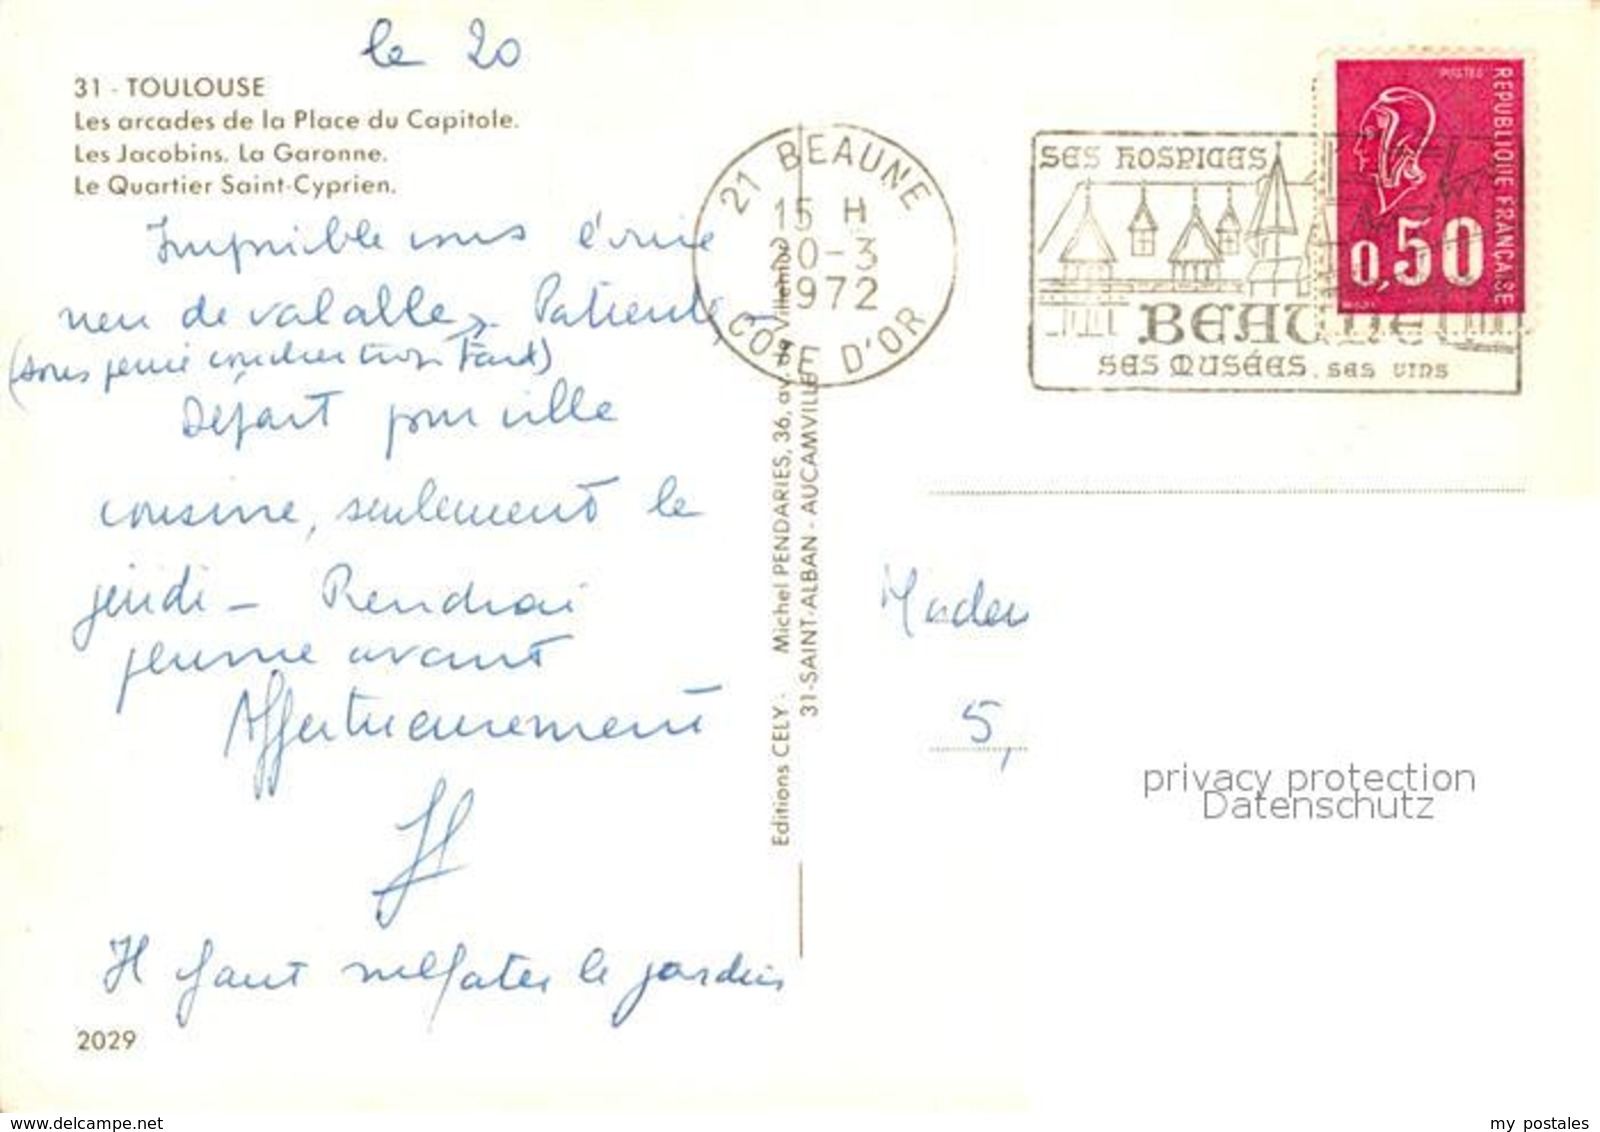 le 20
31 - TOULOUSE
Les arcades de la Place du Capitole.
Les Jacobins. La Garonne.
Le Quartier Saint-Cyprien.
Impossible vous écrire
rien de valable. Patience
(sous peine tard)
Départ pour ville
cousine, seulement le
jeudi - Rendrai
avant
Affectueusement
Il faut sulfater le jardin
2029
Editions CELY - Michel PENDARIES, 36, av. de Villemur
31-SAINT-ALBAN - AUCAMVILLE
21 BEAUNE
15 H
20-3
1972
COTE D'OR
SES HOSPICES
BEAUNE
SES MUSÉES. SES VINS
POSTES
REPUBLIQUE FRANÇAISE
0,50
5,
privacy protection
Datenschutz
www.delcampe.net
my_postales